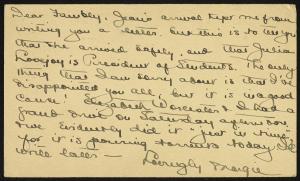 Dear Family, Jean's arrival kept me from
writing you a letter. But this is to let you
that she arrived safely, and that Julia
is President of Students. The only
thing that I am sorry about is that I've
disappointed you all, but it is in a good
cause! Elizabeth Worcester & I had a
grand drive on Saturday afternoon,
we evidently did it "just in time"
for it is pouring torrents today. I'll
write later —
Lovingly